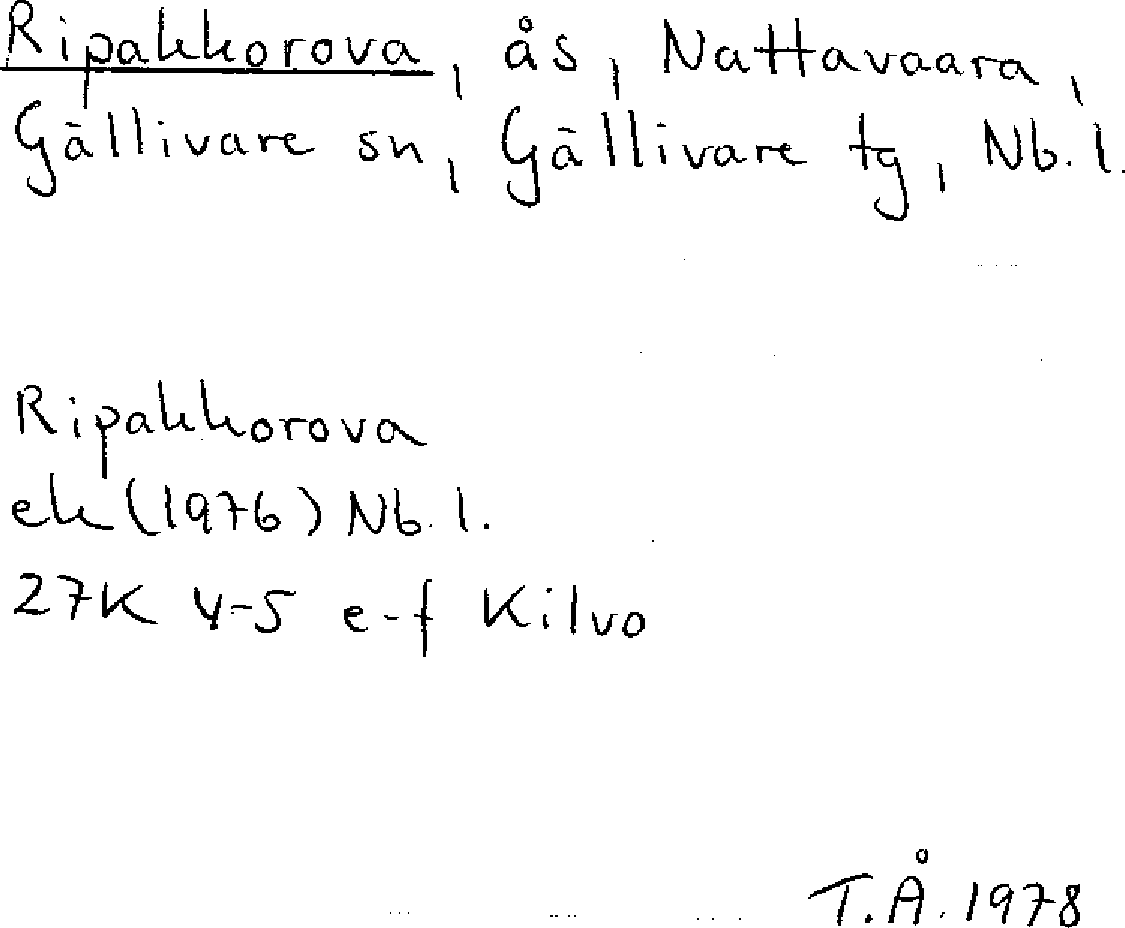 Ripakkorova, ås, Nattavaara,
Gällivare sn, Gällivare tg, Nb. l.
Ripakkorova
ek (1976) Nb. l.
27K 4-5 e-f Kilvo
T.Å. 1978